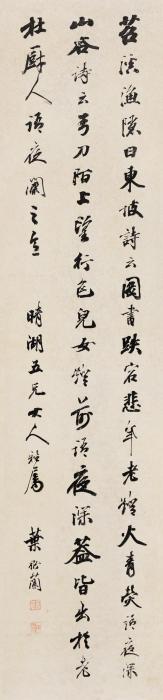 苕溪漁隱曰東坡詩云圖書跌宕悲年老燈火青熒語夜深
山谷詩云弓刀陌上望行色兒女燈前語夜深蓋皆出於老
杜厨人語夜闌之意
晴湖五兄大人雅屬
葉
蘭